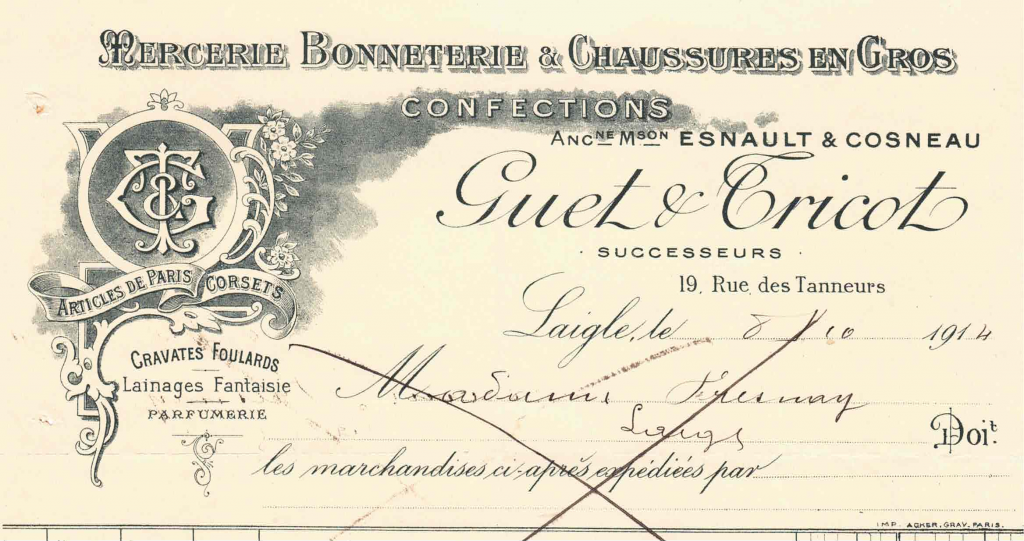 MERCERIE BONNETERIE & CHAUSSURES EN GROS
CONFECTIONS
ANCNE MSON ESNAULT & COSNEAU
Guet & Tricot
· SUCCESSEURS ·
19, Rue des Tanneurs
ARTICLES DE PARIS CORSETS
CRAVATES FOULARDS
Lainages Fantaisie
PARFUMERIE
Laigle, le 8 1914
Madame Fresnay
Doit
les marchandises ci-après expédiées par
IMP. ACKER, GRAV. PARIS.